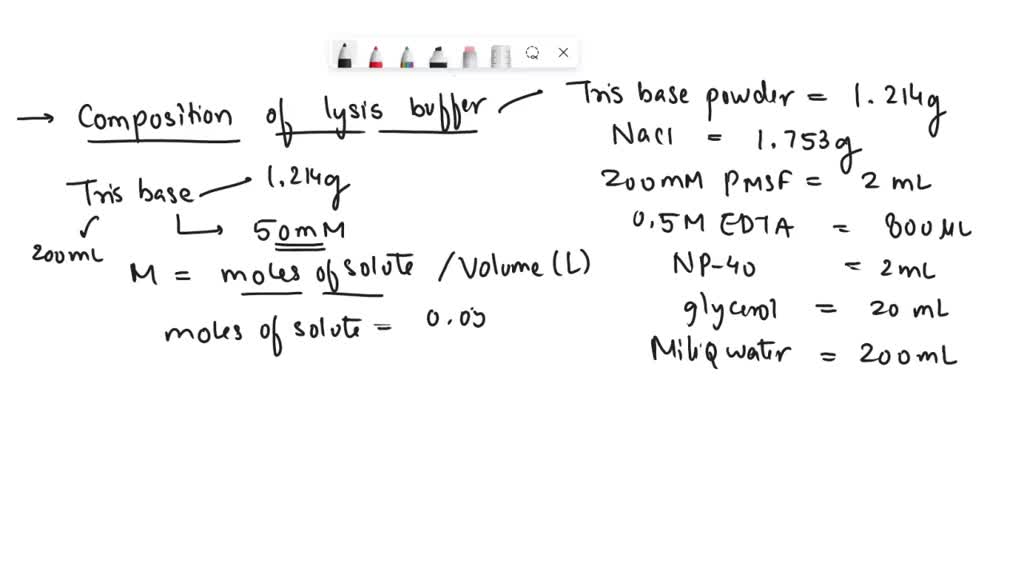 → Composition of lysis buffer
Tris base 1.214g
200mL
50mM
M = moles of solute / Volume (L)
moles of solute = 0.05
Tris base powder = 1.214g
NaCl = 1.753g
200mM PMSF = 2 mL
0.5M EDTA = 800 μL
NP-40 = 2mL
glycerol = 20 mL
MiliQ water = 200mL